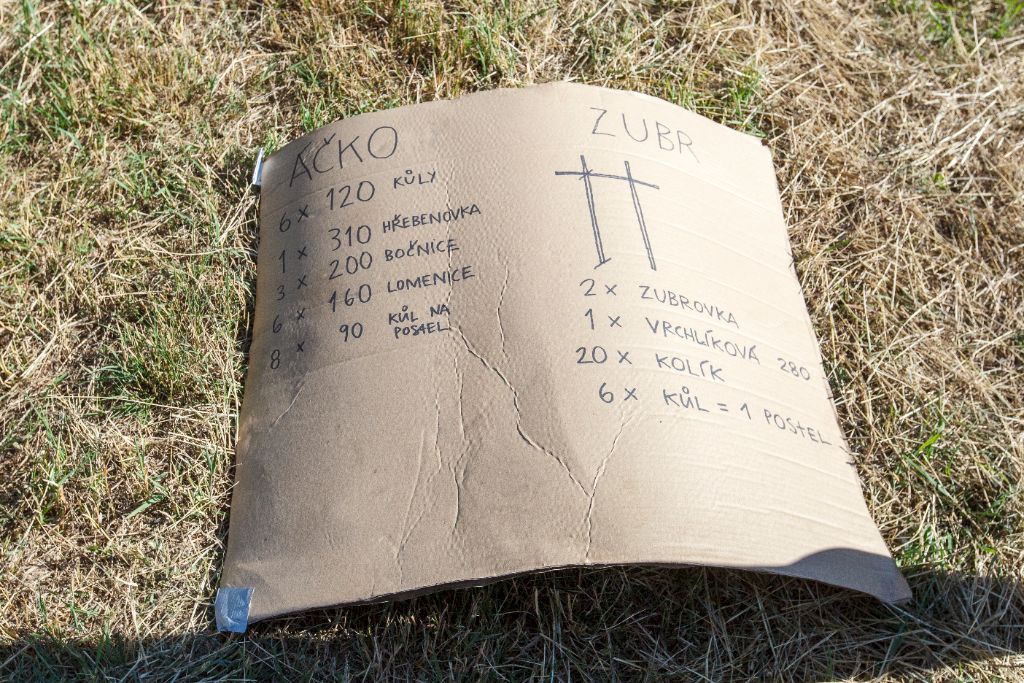 AČKO
6 x 120 KŮLY
1 x 310 HŘEBENOVKA
3 x 200 BOČNICE
6 x 160 LOMENICE
8 x 90 KŮL NA
POSTEL
ZUBR
2 x ZUBROVKA
1 x VRCHLÍKOVÁ 280
20 x KOLÍK
6 x KŮL = 1 POSTEL